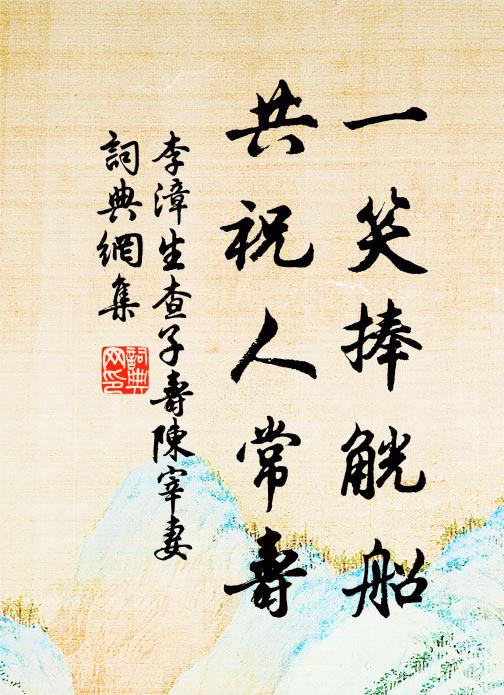 一笑捧觥船
共祝人常壽
李漳生查子壽陳宰妻
詞典網集
詞典網印